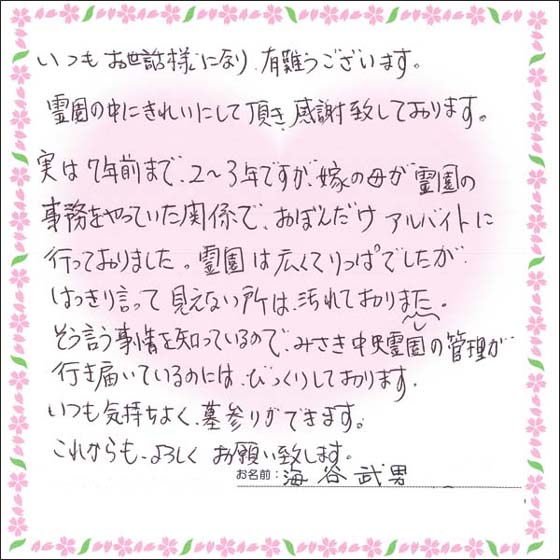 いつもお世話様になり、有難うございます。
霊園の中にきれいにして頂き、感謝致しております。
実は7年前まで、2〜3年ですが、嫁の母が霊園の
事務をやっていた関係で、おぼんだけアルバイトに
行っておりました。霊園は広くてりっぱでしたが
はっきり言って見えない所は、汚れておりました。
そう言う事情を知っているので、みさき中央霊園の管理が
行き届いているのには、びっくりしております。
いつも気持ちよく、墓参りができます。
これからも、よろしくお願い致します。
お名前：海谷武男